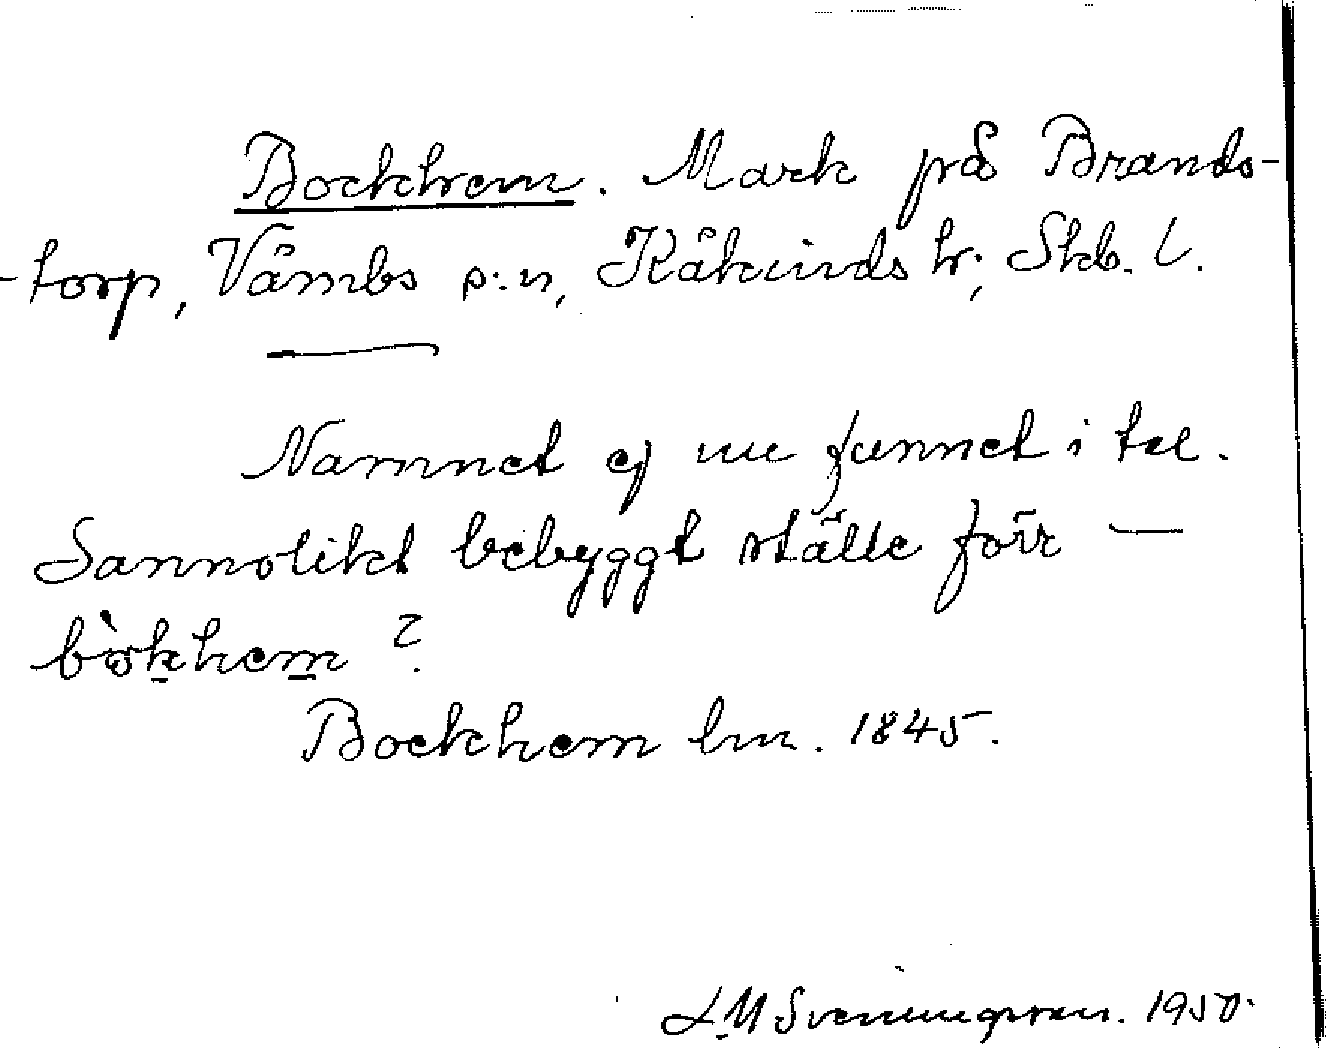 Bockhem. Mark på Brands-
-torp, Våmbs s:n, Kåkinds hr; Skb. l.
Namnet ej nu funnet i tal.
Sannolikt bebyggt ställe förr —
bòkhem?
Bockhem lm. 1845.
L M Svenungsson. 1950.